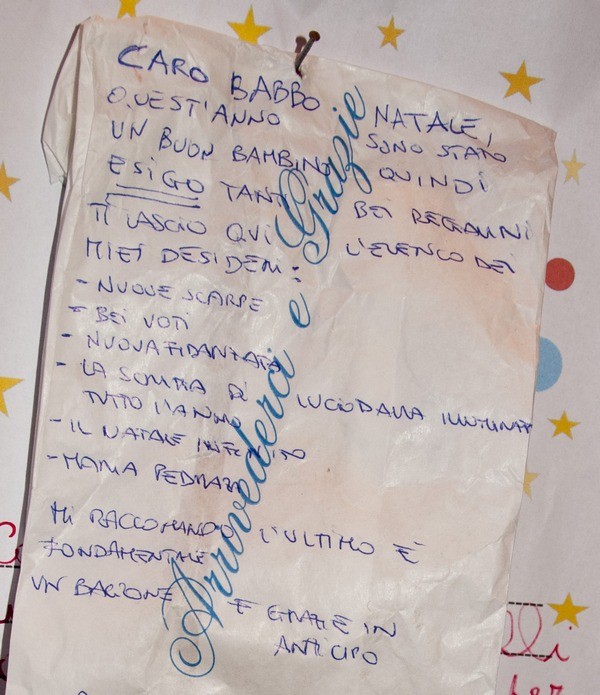 CARO BABBO NATALE,
QUEST'ANNO SONO STATO
UN BUON BAMBINO QUINDI
ESIGO TANTI BEI REGALINI
TI LASCIO QUI L'ELENCO DEI
MIEI DESIDERI:
- NUOVE SCARPE
- BEI VOTI
- NUOVA FIDANZATA
- LA SCRITTA DI LUCIO DALLA ILLUMINATA
TUTTO L'ANNO
- IL NATALE INFINITO
- MARIA
MI RACCOMANDO L'ULTIMO È
FONDAMENTALE
UN BACIONE E GRAZIE IN
ANTICIPO
Arrivederci e Grazie